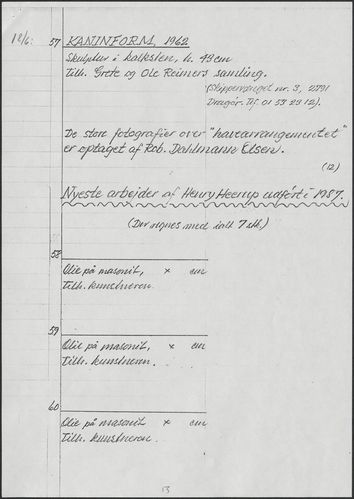 12/6: 57 KANINFORM, 1962
Skulptur i kalksten, h. 49 cm
Tilh. Grete og Ole Reimers samling.
(Skippervænget nr. 3, 2791
Dragør. Tlf. 01 53 29 12).
De store fotografier over "havearrangementet"
er optaget af Rob. Dahlmann Olsen.
(12)
Nyeste arbejder af Henry Heerup udført i 1987.
(Der regnes med ialt 7 stk.)
58
Olie på masonit, x cm
Tilh. kunstneren.
59
Olie på masonit, x cm
Tilh. kunstneren.
60
Olie på masonit x cm
Tilh. kunstneren.
13